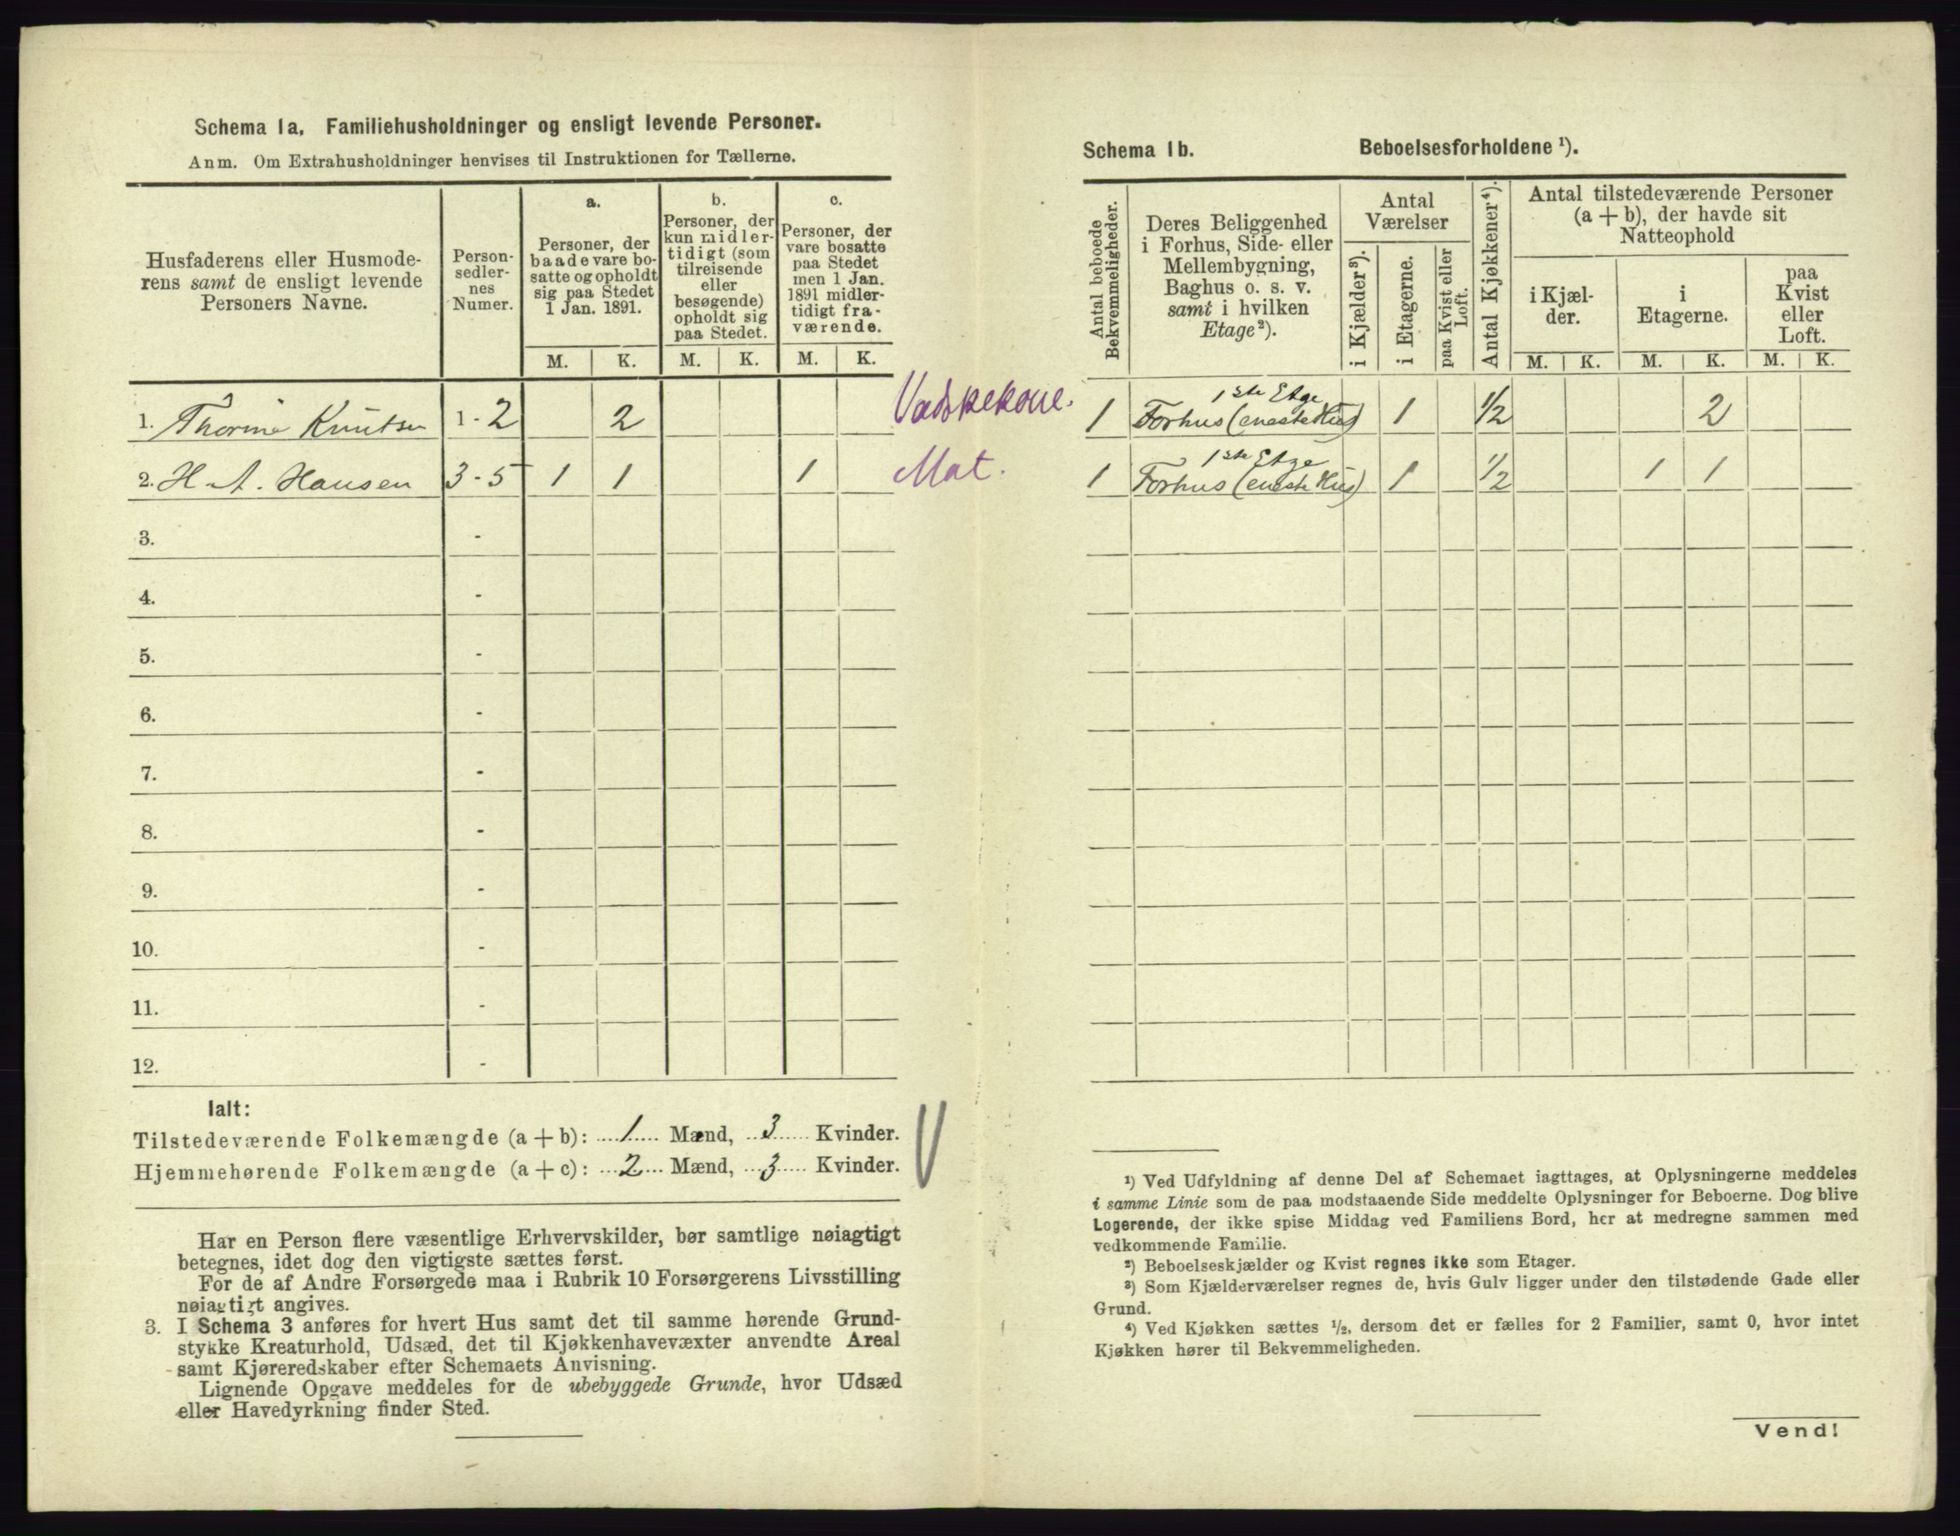 Schema 1a. Familiehusholdninger og ensligt levende Personer.
Anm. Om Extrahusholdninger henvises til Instruktionen for Tællerne.
Husfaderens eller Husmode-
rens samt de ensligt levende
Personers Navne.
Person-
sedler-
nes
Numer.
a.
Personer, der
baade vare bo-
satte og opholdt
sig paa Stedet
1 Jan. 1891.
b.
Personer, der
kun midler-
tidigt (som
tilreisende
eller
besøgende)
opholdt sig
paa Stedet.
c.
Personer, der
vare bosatte
paa Stedet
men 1 Jan.
1891 midler-
tidigt fra-
værende.
M. K. M. K. M. K.
1. Thorine Knutsen 1-2 2 Vadskekone.
2. H. A. Hansen 3-5 1 1 1 Mat.
3. -
4. -
5. -
6. -
7. -
8. -
9. -
10. -
11. -
12. -
Ialt:
Tilstedeværende Folkemængde (a + b): 1 Mænd, 3 Kvinder.
Hjemmehørende Folkemængde (a + c): 2 Mænd, 3 Kvinder.
Har en Person flere væsentlige Erhvervskilder, bør samtlige nøiagtigt
betegnes, idet dog den vigtigste sættes først.
For de af Andre Forsørgede maa i Rubrik 10 Forsørgerens Livsstilling
nøiagtigt angives.
3. I Schema 3 anføres for hvert Hus samt det til samme hørende Grund-
stykke Kreaturhold, Udsæd, det til Kjøkkenhavevæxter anvendte Areal
samt Kjøreredskaber efter Schemaets Anvisning.
Lignende Opgave meddeles for de ubebyggede Grunde, hvor Udsæd
eller Havedyrkning finder Sted.
Schema 1b. Beboelsesforholdene ¹).
Antal beboede
Bekvemmeligheder.
Deres Beliggenhed
i Forhus, Side- eller
Mellembygning,
Baghus o. s. v.
samt i hvilken
Etage²).
Antal
Værelser
i Kjælder³).
i Etagerne.
paa Kvist eller
Loft.
Antal Kjøkkener⁴).
Antal tilstedeværende Personer
(a + b), der havde sit
Natteophold
i Kjæl-
der.
i
Etagerne.
paa
Kvist
eller
Loft.
M. K. M. K. M. K.
1ste Etge
1 Forhus (eneste Hus) 1 1/2 2
1ste Etge
1 Forhus (eneste Hus) 1 1/2 1 1
¹) Ved Udfyldning af denne Del af Schemaet iagttages, at Oplysningerne meddeles
i samme Linie som de paa modstaaende Side meddelte Oplysninger for Beboerne. Dog blive
Logerende, der ikke spise Middag ved Familiens Bord, her at medregne sammen med
vedkommende Familie.
²) Beboelseskjælder og Kvist regnes ikke som Etager.
³) Som Kjælderværelser regnes de, hvis Gulv ligger under den tilstødende Gade eller
Grund.
⁴) Ved Kjøkken sættes ½, dersom det er fælles for 2 Familier, samt 0, hvor intet
Kjøkken hører til Bekvemmeligheden.
Vend!